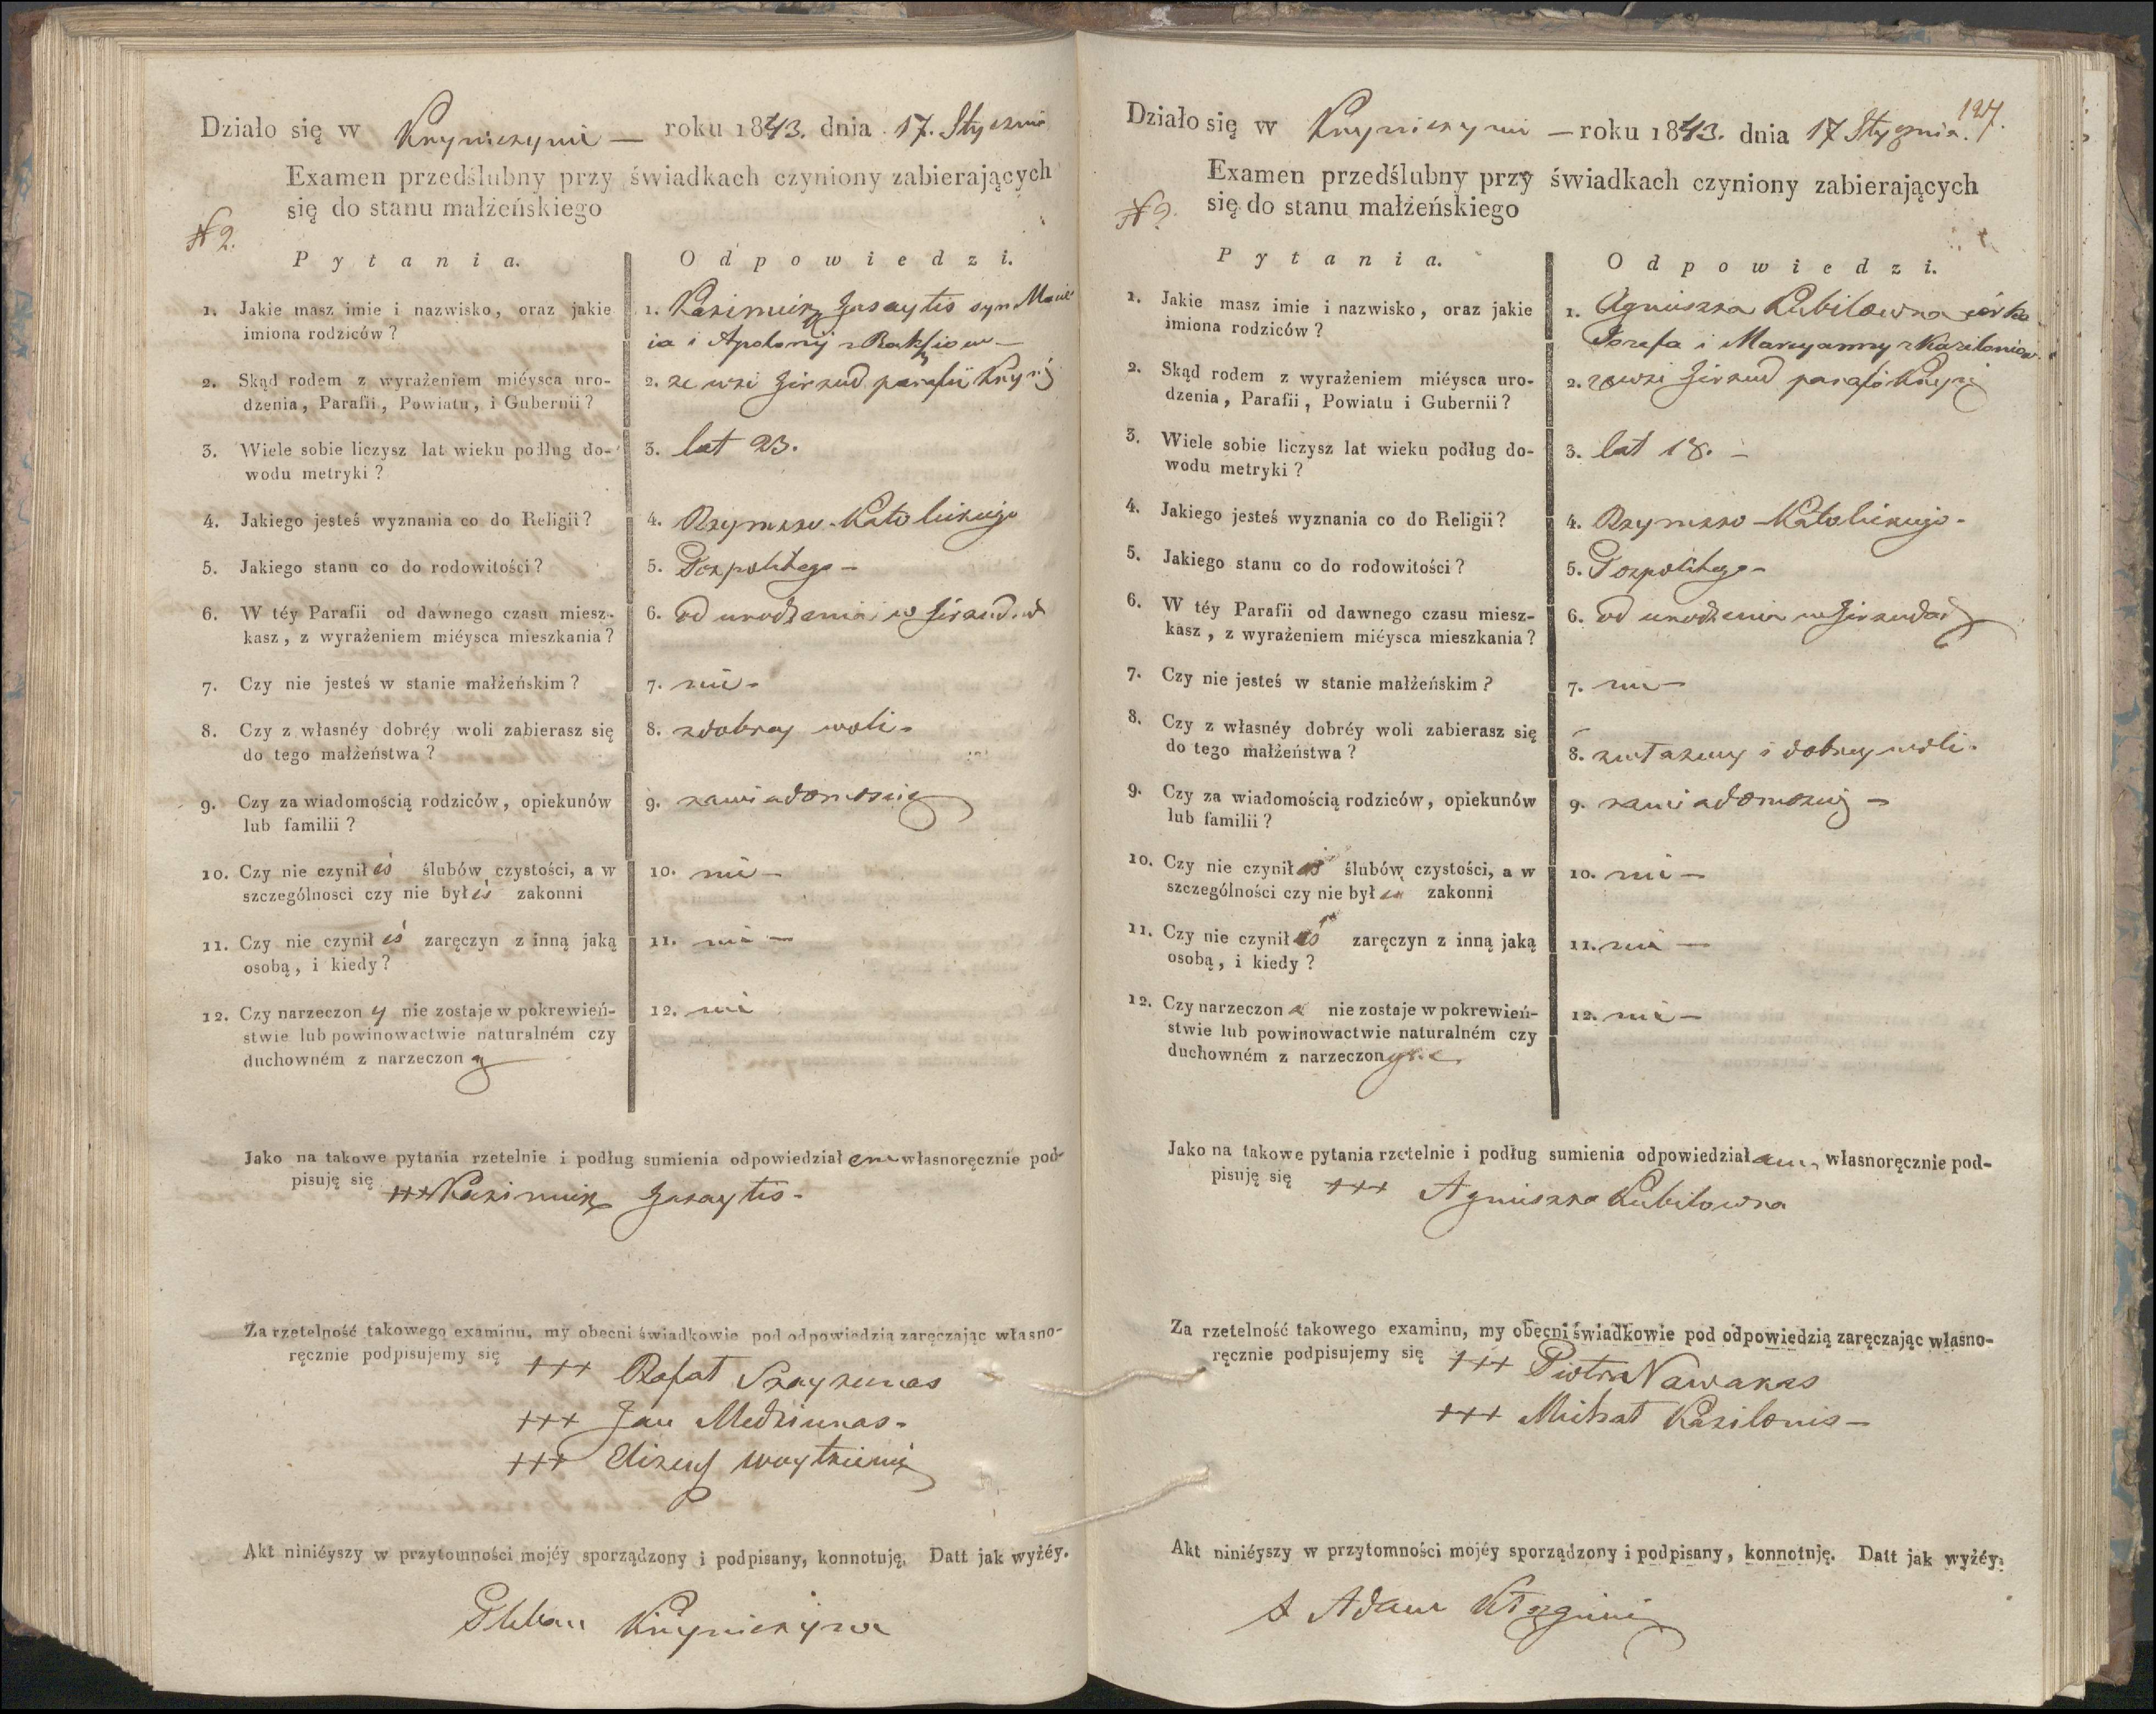 Działo się w Krynicznynie — roku 1843. dnia 17. Stycznia
Examen przedślubny przy świadkach czyniony zabierających
się do stanu małżeńskiego
N 2.
Pytania. Odpowiedzi.
1. Jakie masz imie i nazwisko, oraz jakie
imiona rodziców?
1. Kazimierz syn
ia i Apolonij z
2. Skąd rodem z wyrażeniem miéysca uro-
dzenia, Parafii, Powiatu, i Gubernii?
2. ze wsi parafii
3. Wiele sobie liczysz lat wieku podług do-
wodu metryki?
3. lat 23.
4. Jakiego jesteś wyznania co do Religii?
4. Rzymsko-Katolickiego
5. Jakiego stanu co do rodowitości?
5. Pospolitego —
6. W téy Parafii od dawnego czasu miesz-
kasz, z wyrażeniem miéysca mieszkania?
6. od urodzenia w
7. Czy nie jesteś w stanie małżeńskim?
7. nie -
8. Czy z własnéy dobréy woli zabierasz się
do tego małżeństwa?
8. z dobrey woli -
9. Czy za wiadomością rodziców, opiekunów
lub familii?
9. za wiadomością
10. Czy nie czynił eś ślubów czystości, a w
szczególnosci czy nie był eś zakonni
10. nie —
11. Czy nie czynił eś zaręczyn z inną jaką
osobą, i kiedy?
11. nie —
12. Czy narzeczon y nie zostaje w pokrewień-
stwie lub powinowactwie naturalném czy
duchowném z narzeczon ą
12. nie
Jako na takowe pytania rzetelnie i podług sumienia odpowiedział em własnoręcznie pod-
pisuję się +++ Kazimierz
Za rzetelność takowego examinu, my obecni świadkowie pod odpowiedzią zaręczając własno-
ręcznie podpisujemy się +++ Rafał
+++ Jan Medziunas -
+++ Elizeusz
Akt niniéyszy w przytomności mojéy sporządzony i podpisany, konnotuję. Datt jak wyżéy.
Pleban
127.
Działo się w — roku 1843. dnia 17 Stycznia.
Examen przedślubny przy świadkach czyniony zabierających
się do stanu małżeńskiego
N 2.
Pytania. Odpowiedzi.
1. Jakie masz imie i nazwisko, oraz jakie
imiona rodziców?
1. Agnieszka Kubilowna córka
Jozefa i Maryanny z
2. Skąd rodem z wyrażeniem miéysca uro-
dzenia, Parafii, Powiatu i Gubernii?
2. ze wsi parafii
3. Wiele sobie liczysz lat wieku podług do-
wodu metryki?
3. lat 18. -
4. Jakiego jesteś wyznania co do Religii?
4. Rzymsko-Katolickiego -
5. Jakiego stanu co do rodowitości?
5. Pospolitego -
6. W téy Parafii od dawnego czasu miesz-
kasz, z wyrażeniem miéysca mieszkania?
6. od urodzenia w
7. Czy nie jesteś w stanie małżeńskim?
7. nie —
8. Czy z własnéy dobréy woli zabierasz się
do tego małżeństwa?
8. z własney i dobrey woli.
9. Czy za wiadomością rodziców, opiekunów
lub familii?
9. za wiadomością -
10. Czy nie czynił aś ślubów czystości, a w
szczególności czy nie był aś zakonni
10. nie —
11. Czy nie czynił aś zaręczyn z inną jaką
osobą, i kiedy?
11. nie —
12. Czy narzeczon a nie zostaje w pokrewień-
stwie lub powinowactwie naturalném czy
duchowném z narzeczon
12. nie —
Jako na takowe pytania rzetelnie i podług sumienia odpowiedział am własnoręcznie pod-
pisuję się +++ Agnieszka Kubilowna
Za rzetelność takowego examinu, my obecni świadkowie pod odpowiedzią zaręczając własno-
ręcznie podpisujemy się +++ Piotr Nawakas
+++ Michał Kazilonis —
Akt niniéyszy w przytomności mojéy sporządzony i podpisany, konnotuję. Datt jak wyżéy.
X Adam